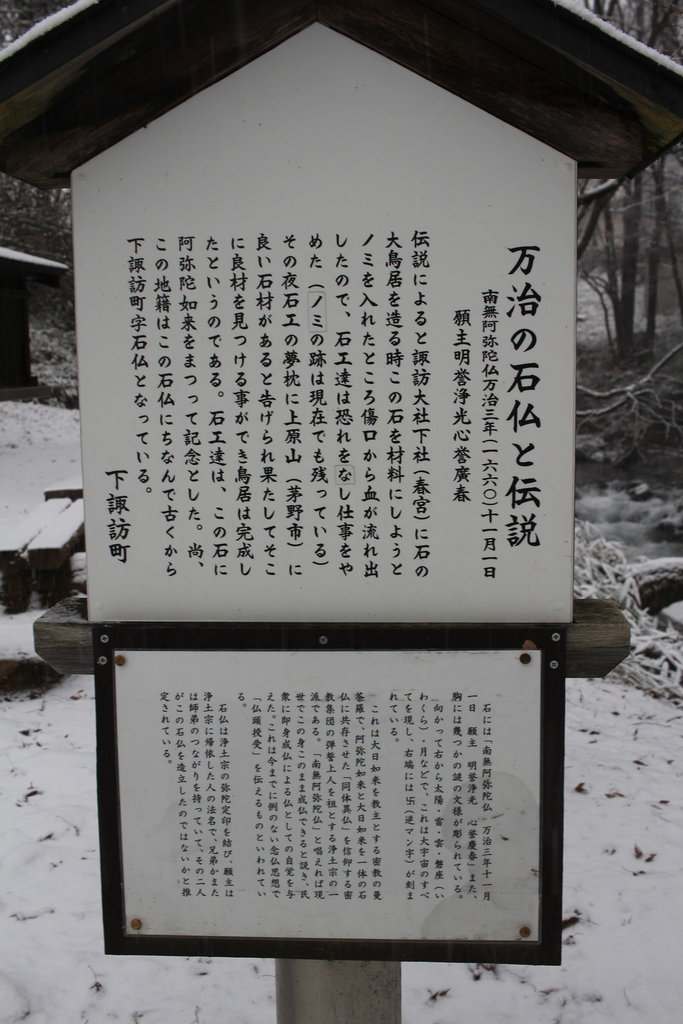 万治の石仏と伝説
南無阿弥陀仏万治三年(一六六〇)十一月一日
願主明誉浄光心誉廣春
伝説によると諏訪大社下社(春宮)に石の
大鳥居を造る時この石を材料にしようと
ノミを入れたところ傷口から血が流れ出
したので、石工達は恐れをなし仕事をや
めた(ノミの跡は現在でも残っている)
その夜石工の夢枕に上原山(茅野市)に
良い石材があると告げられ果たしてそこ
に良材を見つける事ができ鳥居は完成し
たというのである。石工達は、この石に
阿弥陀如来をまつって記念とした。尚、
この地籍はこの石仏にちなんで古くから
下諏訪町字石仏となっている。
下諏訪町
石には「南無阿弥陀仏 万治三年十一月
一日 願主 明誉浄光 心誉慶春」また、
胸には幾つかの謎の文様が彫られている。
向かって右から太陽・雷・雲・磐座(い
わくら)・月などで、これは大宇宙のすべ
てを現し、右端には卍(逆マン字)が刻ま
れている。
これは大日如来を教主とする密教の曼
荼羅で、阿弥陀如来と大日如来を一体の石
仏に共存させた「同体異仏」を信仰する密
教集団の弾誓上人を祖とする浄土宗の一
派である。「南無阿弥陀仏」と唱えれば現
世でこの身このまま成仏できると説き、民
衆に即身成仏による仏としての自覚を与
えた。これは今までに例のない念仏思想で
「仏頭授受」を伝えるものといわれてい
る。
石仏は浄土宗の弥陀定印を結び、願主は
浄土宗に帰依した人の法名で、兄弟かまた
は師弟のつながりを持っていて、その二人
がこの石仏を造立したのではないかと推
定されている。